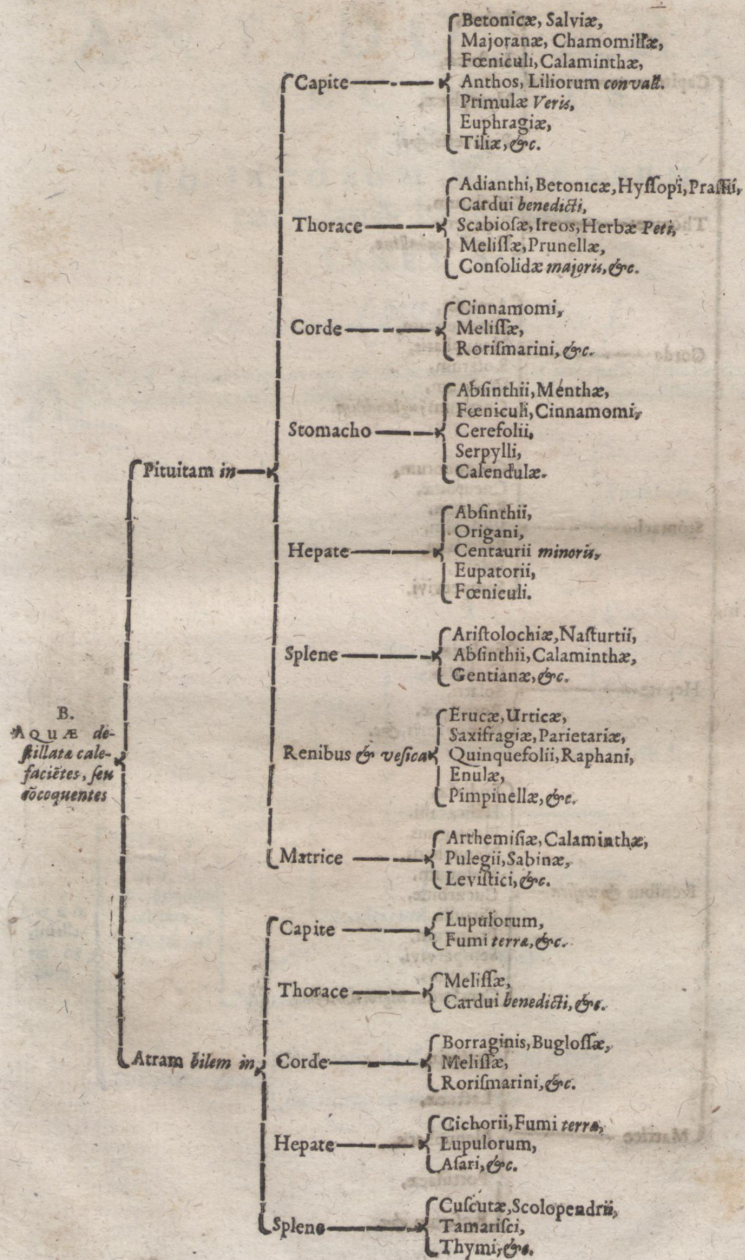 B.
AQUÆ de-
ſtillatæ cale-
faciẽtes, ſeu
cõcoquentes
Pituitam in
Capite
Betonicæ, Salviæ,
Majoranæ, Chamomillæ,
Fœniculi, Calaminthæ,
Anthos, Liliorum convall.
Primulæ Veris,
Euphragiæ,
Tiliæ, &c.
Thorace
Adianthi, Betonicæ, Hyſſopi, Praſſii,
Cardui benedicti,
Scabioſæ, Ireos, Herbæ Peti,
Meliſſæ, Prunellæ,
Conſolidæ majoris, &c.
Corde
Cinnamomi,
Meliſſæ,
Roriſmarini, &c.
Stomacho
Abſinthii, Menthæ,
Fœniculi, Cinnamomi,
Cerefolii,
Serpylli,
Calendulæ.
Hepate
Abſinthii,
Origani,
Centaurii minoris,
Eupatorii,
Fœniculi.
Splene
Ariſtolochiæ, Naſturtii,
Abſinthii, Calaminthæ,
Gentianæ, &c.
Renibus & veſica
Erucæ, Urticæ,
Saxifragiæ, Parietariæ,
Quinquefolii, Raphani,
Enulæ,
Pimpinellæ, &c.
Matrice
Arthemiſiæ, Calaminthæ,
Pulegii, Sabinæ,
Leviſtici, &c.
Atram bilem in
Capite
Lupulorum,
Fumi terræ, &c.
Thorace
Meliſſæ,
Cardui benedicti, &c.
Corde
Borraginis, Bugloſſæ,
Meliſſæ,
Roriſmarini, &c.
Hepate
Cichorii, Fumi terræ,
Lupulorum,
Aſari, &c.
Splene
Cuſcutæ, Scolopendrii,
Tamariſci,
Thymi, &c.